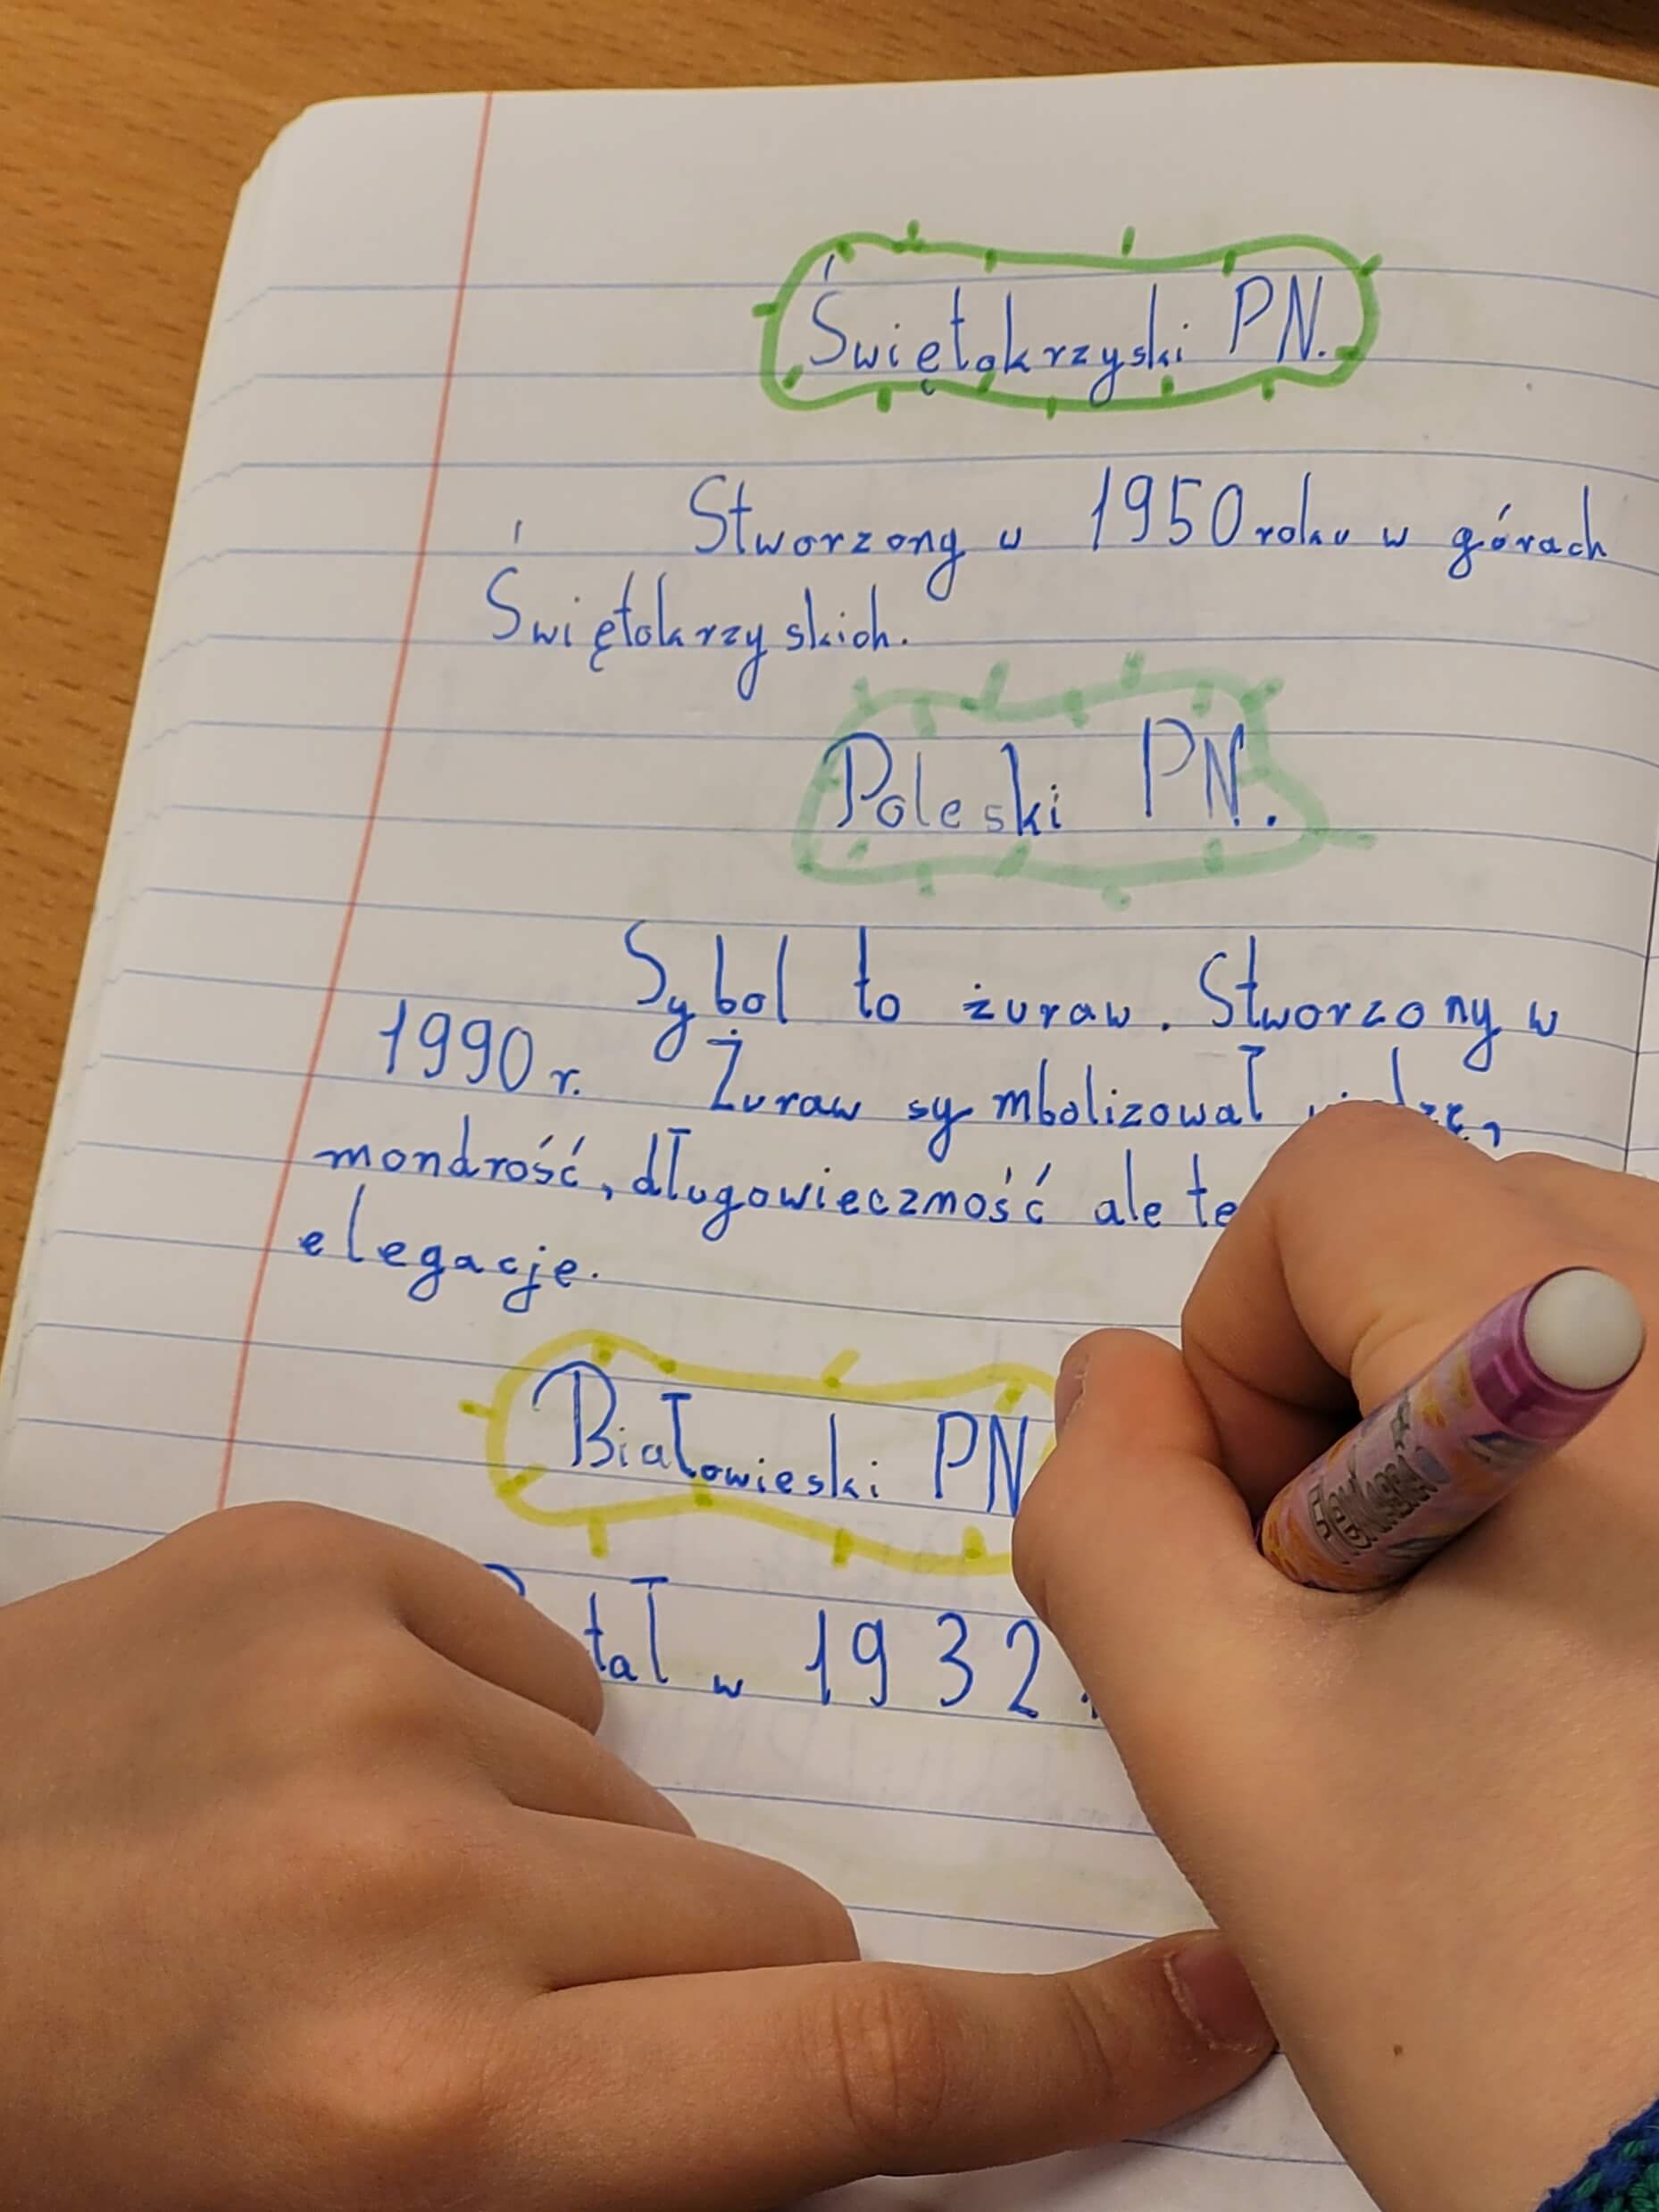 Świętokrzyski PN.
Stworzony w 1950 roku w górach
Świętokrzyskich.
Poleski PN.
Sybol to żuraw. Stworzony w
1990 r. Żuraw symbolizował
mondrość, długowieczność ale
elegacje.
Białowieski PN
w 1932